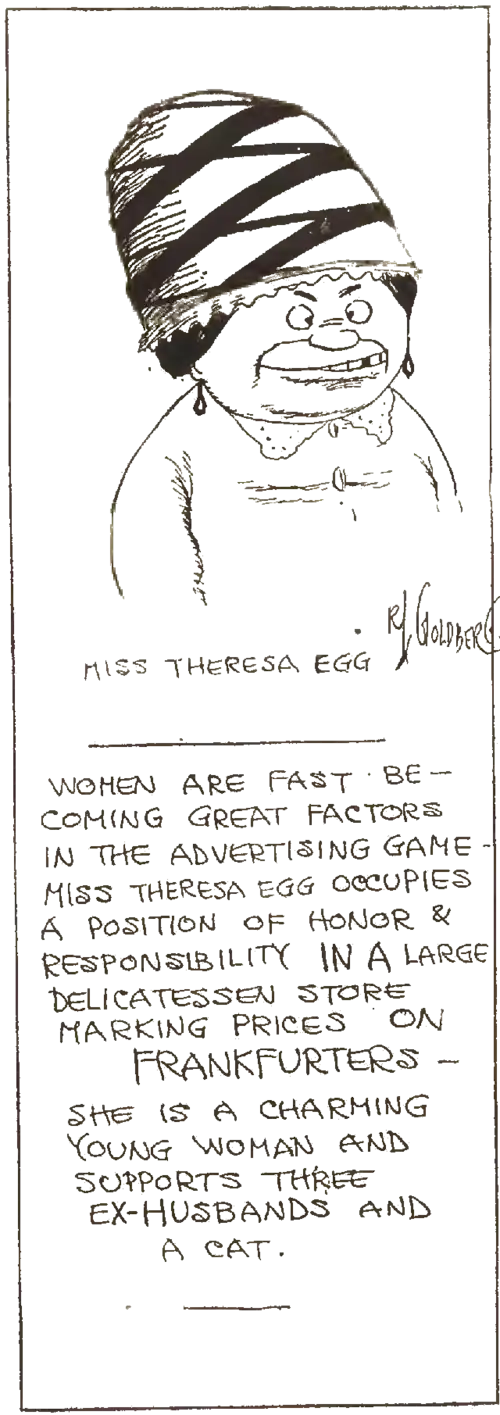 R. L. GOLDBERG.
MISS THERESA EGG
WOMEN ARE FAST BE-
COMING GREAT FACTORS
IN THE ADVERTISING GAME-
MISS THERESA EGG OCCUPIES
A POSITION OF HONOR &
RESPONSIBILITY IN A LARGE
DELICATESSEN STORE
MARKING PRICES ON
FRANKFURTERS-
SHE IS A CHARMING
YOUNG WOMAN AND
SUPPORTS THREE
EX-HUSBANDS AND
A CAT.